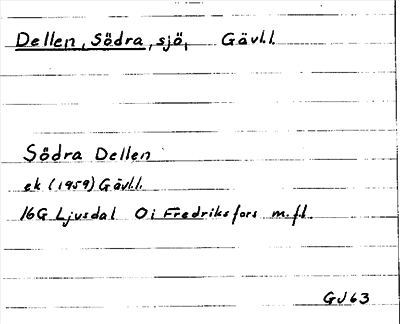 Dellen, Södra, sjö, Gävl.l.
Södra Dellen
ek (1959) Gävl.l.
16G Ljusdal 0i Fredriksfors m.fl.
GJ63